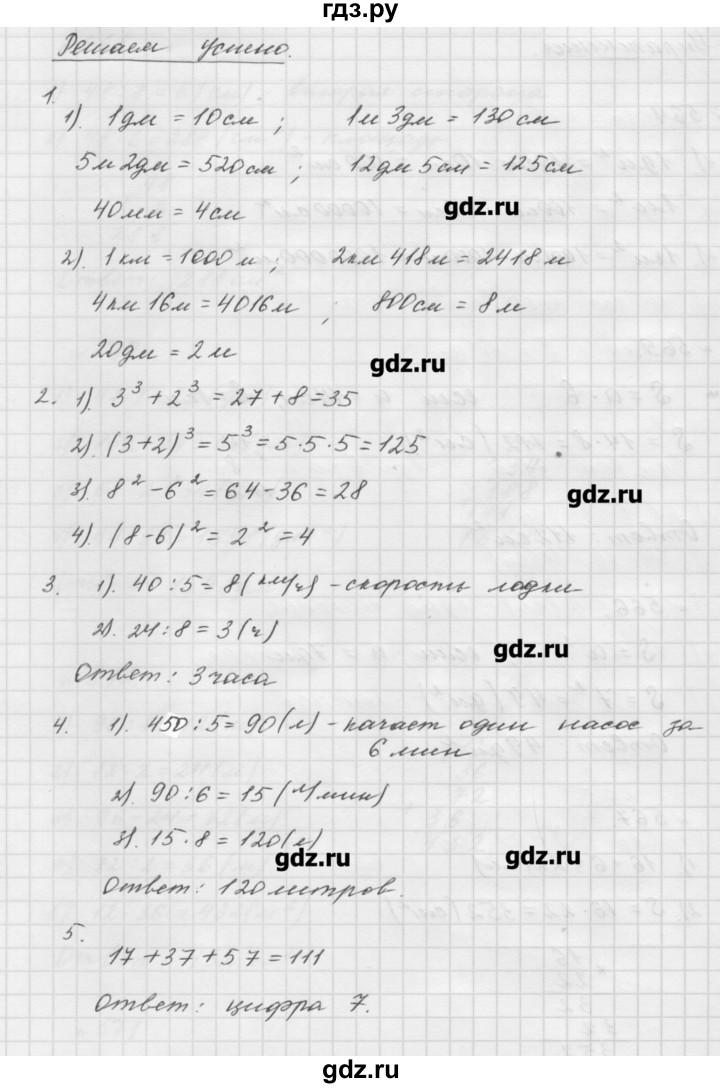 гдз.ру
Решаем устно.
1.
1). 1дм = 10см ; 1м 3дм = 130см
5м 2дм = 520см ; 12дм 5см = 125см
40мм = 4см
gdz.ru
2). 1км = 1000м ; 2км 418м = 2418м
4км 16м = 4016м ; 800см = 8м
20дм = 2м
gdz.ru
2. 1). 3³ + 2³ = 27 + 8 = 35
2). (3+2)³ = 5³ = 5·5·5 = 125
3). 8² - 6² = 64 - 36 = 28
gdz.ru
4). (8-6)² = 2² = 4
3. 1). 40 : 5 = 8 (км/ч) - скорость лодки
2). 24 : 8 = 3 (ч)
gdz.ru
Ответ: 3 часа
4. 1). 450 : 5 = 90 (л) - качает один насос за
6 мин
2). 90 : 6 = 15 (л/мин)
3). 15 · 8 = 120 (л)
gdz.ru gdz.ru
Ответ: 120 литров.
5.
17 + 37 + 57 = 111
Ответ: цифра 7.
gdz.ru